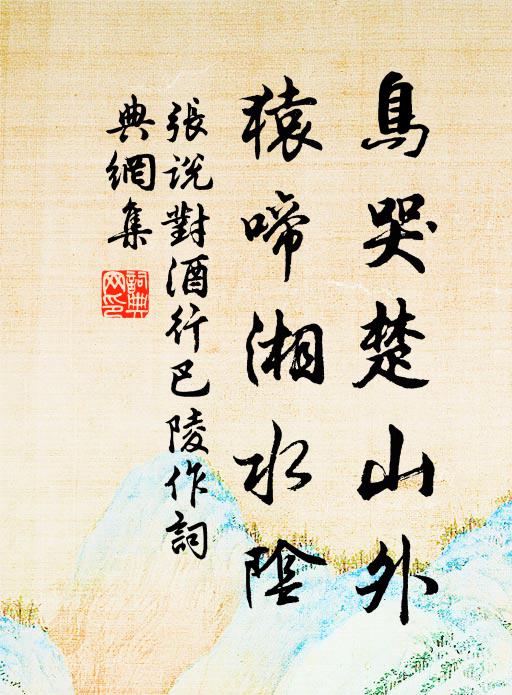 鳥哭楚山外
猿啼湘水陰
張說對酒行巴陵作詞
典網集
詞典
网印